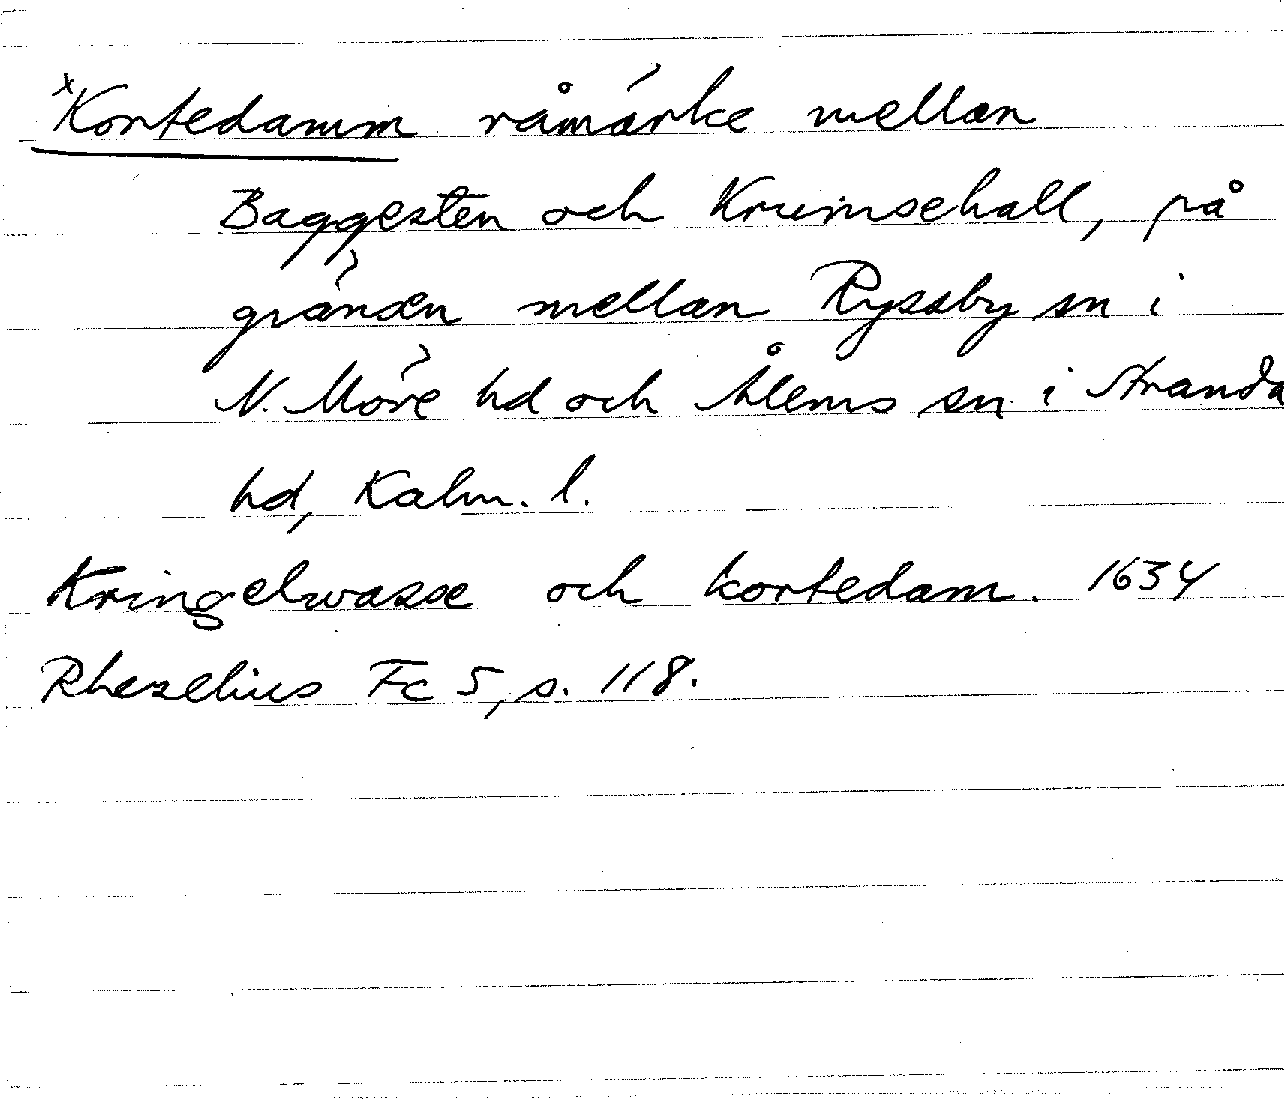 ×Kortedamm råmärke mellan
Baggesten och Krumsehall, på
gränsen mellan Ryssby sn i
N. Möre hd och Ålems sn i Stranda
hd, Kalm. l.
Kringelwasse och kortedam. 1634
Rhezelius Fc 5, s. 118.